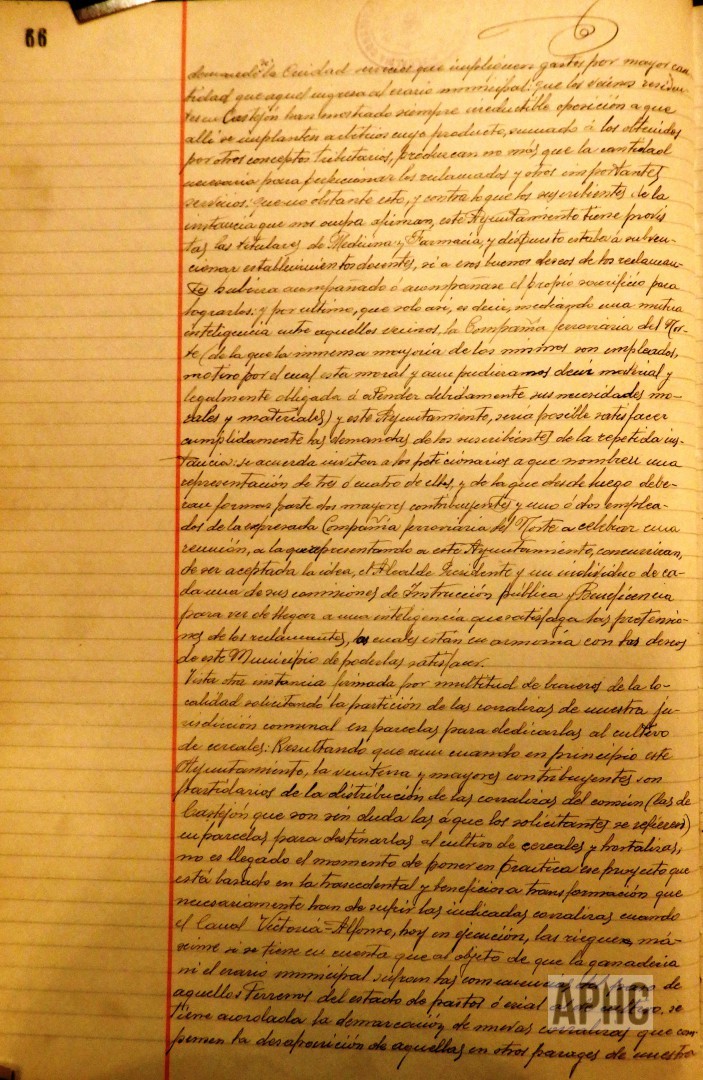 66
demanda de la Ciudad servicios que impliquen gastos por mayor can-
tidad que aquel ingresa al erario municipal: que los vecinos residen-
tes en Castejón han mostrado siempre irreductible oposición a que
alli se implanten arbitrios cuyo producto, sumado á los obtenidos
por otros conceptos tributarios, produzcan no más que la cantidad
necesaria para subvencionar los reclamados y otros importantes
servicios: que no obstante esto, y contra lo que los suscribientes de la
instancia que nos ocupa afirman, este Ayuntamiento tiene provis-
tas las titulares de Medicina y Farmacia, y dispuesto estaba á subven-
cionar establecimientos docentes, si a esos buenos deseos de los reclaman-
tes hubiera acompañado ó acompañase el propio sacrificio para
lograrlos: y por ultimo, que solo asi, es decir, mediando una mutua
inteligencia entre aquellos vecinos, la Compañia ferroviaria del Nor-
te (de la que la inmensa mayoria de los mismos son empleados,
motivo por el cual esta moral y aun pudieramos decir material y
legalmente obligada á atender debidamente sus necesidades mo-
rales y materiales) y este Ayuntamiento, seria posible satisfacer
cumplidamente las demandas de los suscribientes de la repetida ins-
tancia: se acuerda invitar a los peticionarios a que nombren una
representación de tres ó cuatro de ellos, y de la que desde luego debe-
rán formar parte dos mayores contribuyentes y uno ó dos emplea-
dos de la expresada Compañia ferroviaria del Norte a celebrar una
reunión, a la que representando a este Ayuntamiento, concurriran,
de ser aceptada la idea, el Alcalde Presidente y un individuo de ca-
da una de sus comisiones de Instrucción publica y Beneficencia
para ver de llegar a una inteligencia que satisfaga las pretensio-
nes de los reclamantes, las cuales están en armonia con los deseos
de este Municipio de poderlas satisfacer.
Vista otra instancia firmada por multitud de braceros de la lo-
calidad solicitando la partición de las corralizas de nuestra ju-
risdicción comunal en parcelas para dedicarlas al cultivo
de cereales: Resultando que aun cuando en principio este
Ayuntamiento, la veintena y mayores contribuyentes son
partidarios de la distribución de las corralizas del comun (las de
Castejón que son sin duda las á que los solicitantes se refieren)
en parcelas para destinarlas al cultivo de cereales y hortalizas,
no es llegado el momento de poner en practica ese proyecto que
está basado en la trascedental y beneficiosa transformación que
necesariamente han de sufrir las indicadas corralizas cuando
el Canal Victoria-Alfonso, hoy en ejecución, las riegue, má-
xime si se tiene en cuenta que al objeto de que la ganaderia
ni el erario municipal sufran las consecuencias del paso de
aquellos terrenos del estado de pastos ó erial al de cultivo, se
tiene acordada la demarcación de nuevas corralizas que com-
pensen la desaparición de aquellas en otros parages de nuestra
APHC